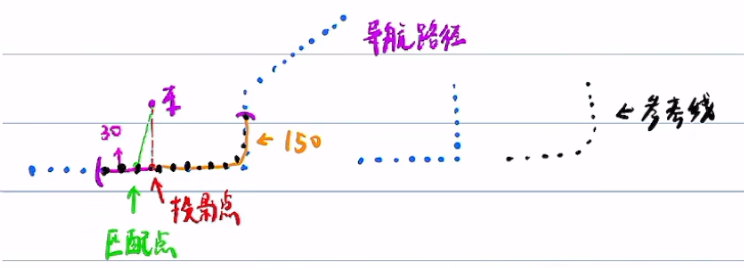 导航路径
车
30
←150
←参考线
投影点
匹配点